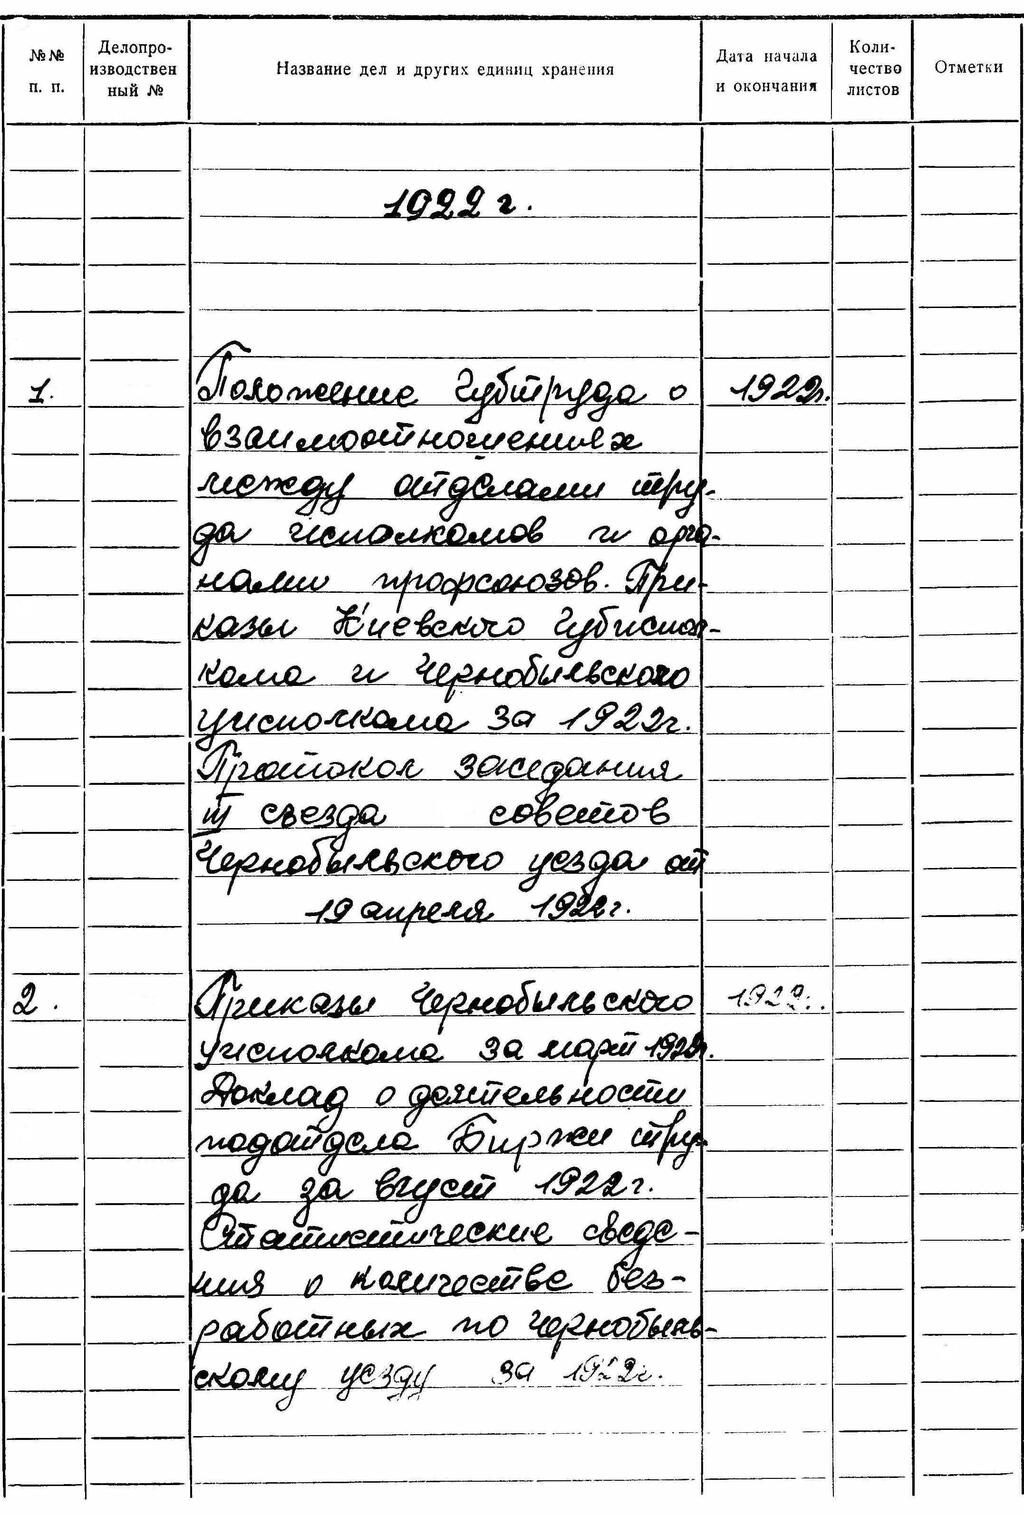 №№ п. п.
Делопро-
изводствен
ный №
Название дел и других единиц хранения
Дата начала
и окончания
Коли-
чество
листов
Отметки
1922 г.
1.
Положение Губтруда о
взаимоотношениях
между отделами тру-
да исполкомов и орга-
нами профсоюзов. При-
казы Киевского Губиспол-
кома и Чернобыльского
уисполкома за 1922г.
Протокол заседания
III съезда советов
Чернобыльского уезда от
19 апреля 1922г.
1922г.
2.
Приказы Чернобыльского
уисполкома за март 1922г.
Доклад о деятельности
подотдела Биржи тру-
да за вгуст 1922г.
Статистические сведе-
ния о количестве без-
работных по Чернобыль-
скому уезду за 1922г.
1922г.